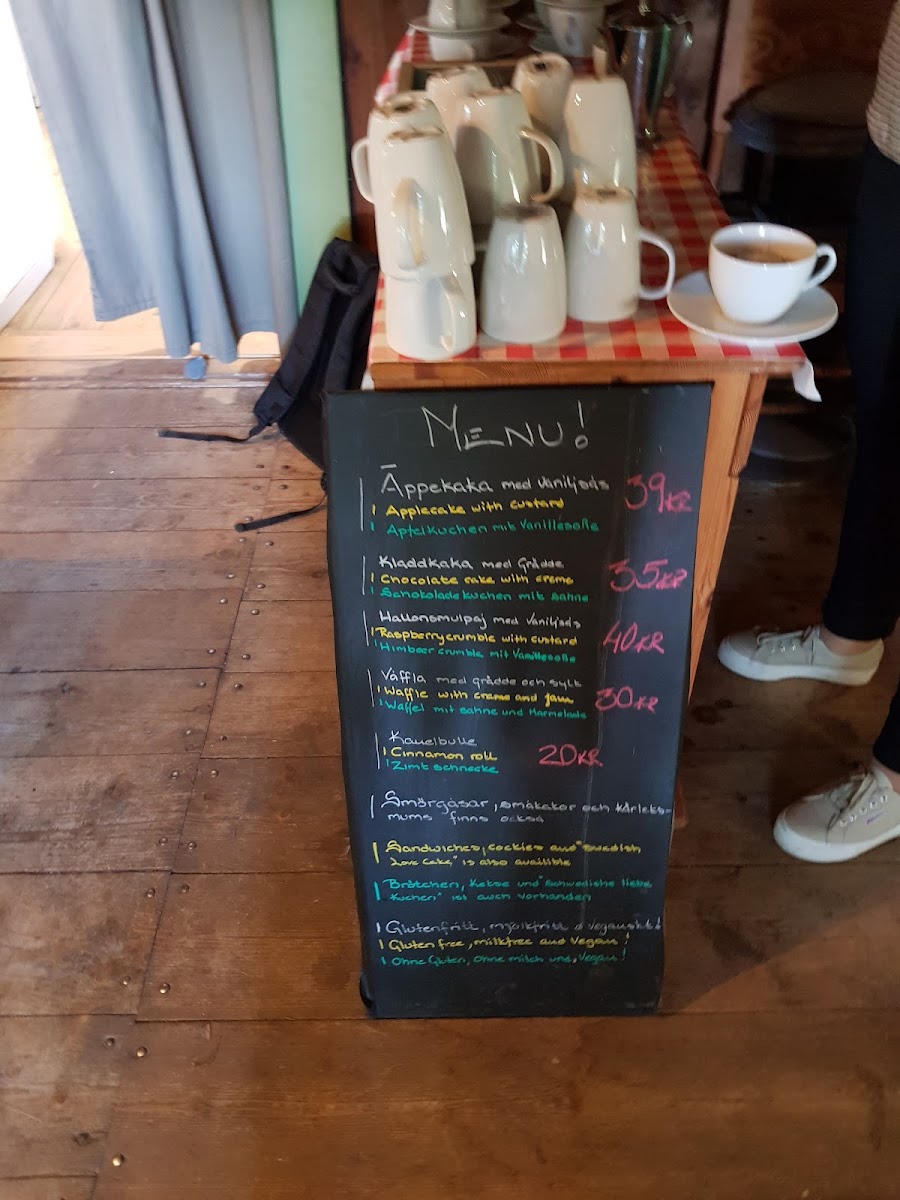 MENU!
Äppekaka med vaniljsås 39KR
Applecake with custard
Apfelkuchen mit Vanillesoße
Kladdkaka med Grädde 35KR
Chocolate cake with creme
Schokoladekuchen mit sahne
Hallonsmulpaj med Vaniljsås
Raspberrycrumble with custard 40KR
Himbeer crumble mit Vanillesoße
Våffla med grädde och sylt
Waffle with creme and jam 30KR
Waffel mit sahne und Marmelade
Kanelbulle
Cinnamon roll 20KR
Zimt schnecke
Smörgåsar, småkakor och kärleks-
mums finns också
Sandwiches, cockies and "Swedish
Love Cake," is also availible
Brötchen, Kekse und "Schwedishe liebe
Kuchen" ist auch vorhanden
Glutenfritt, mjölkfritt & Veganskt!
Gluten free, milkfree and Vegan!
Ohne Gluten, Ohne milch und, Vegan!